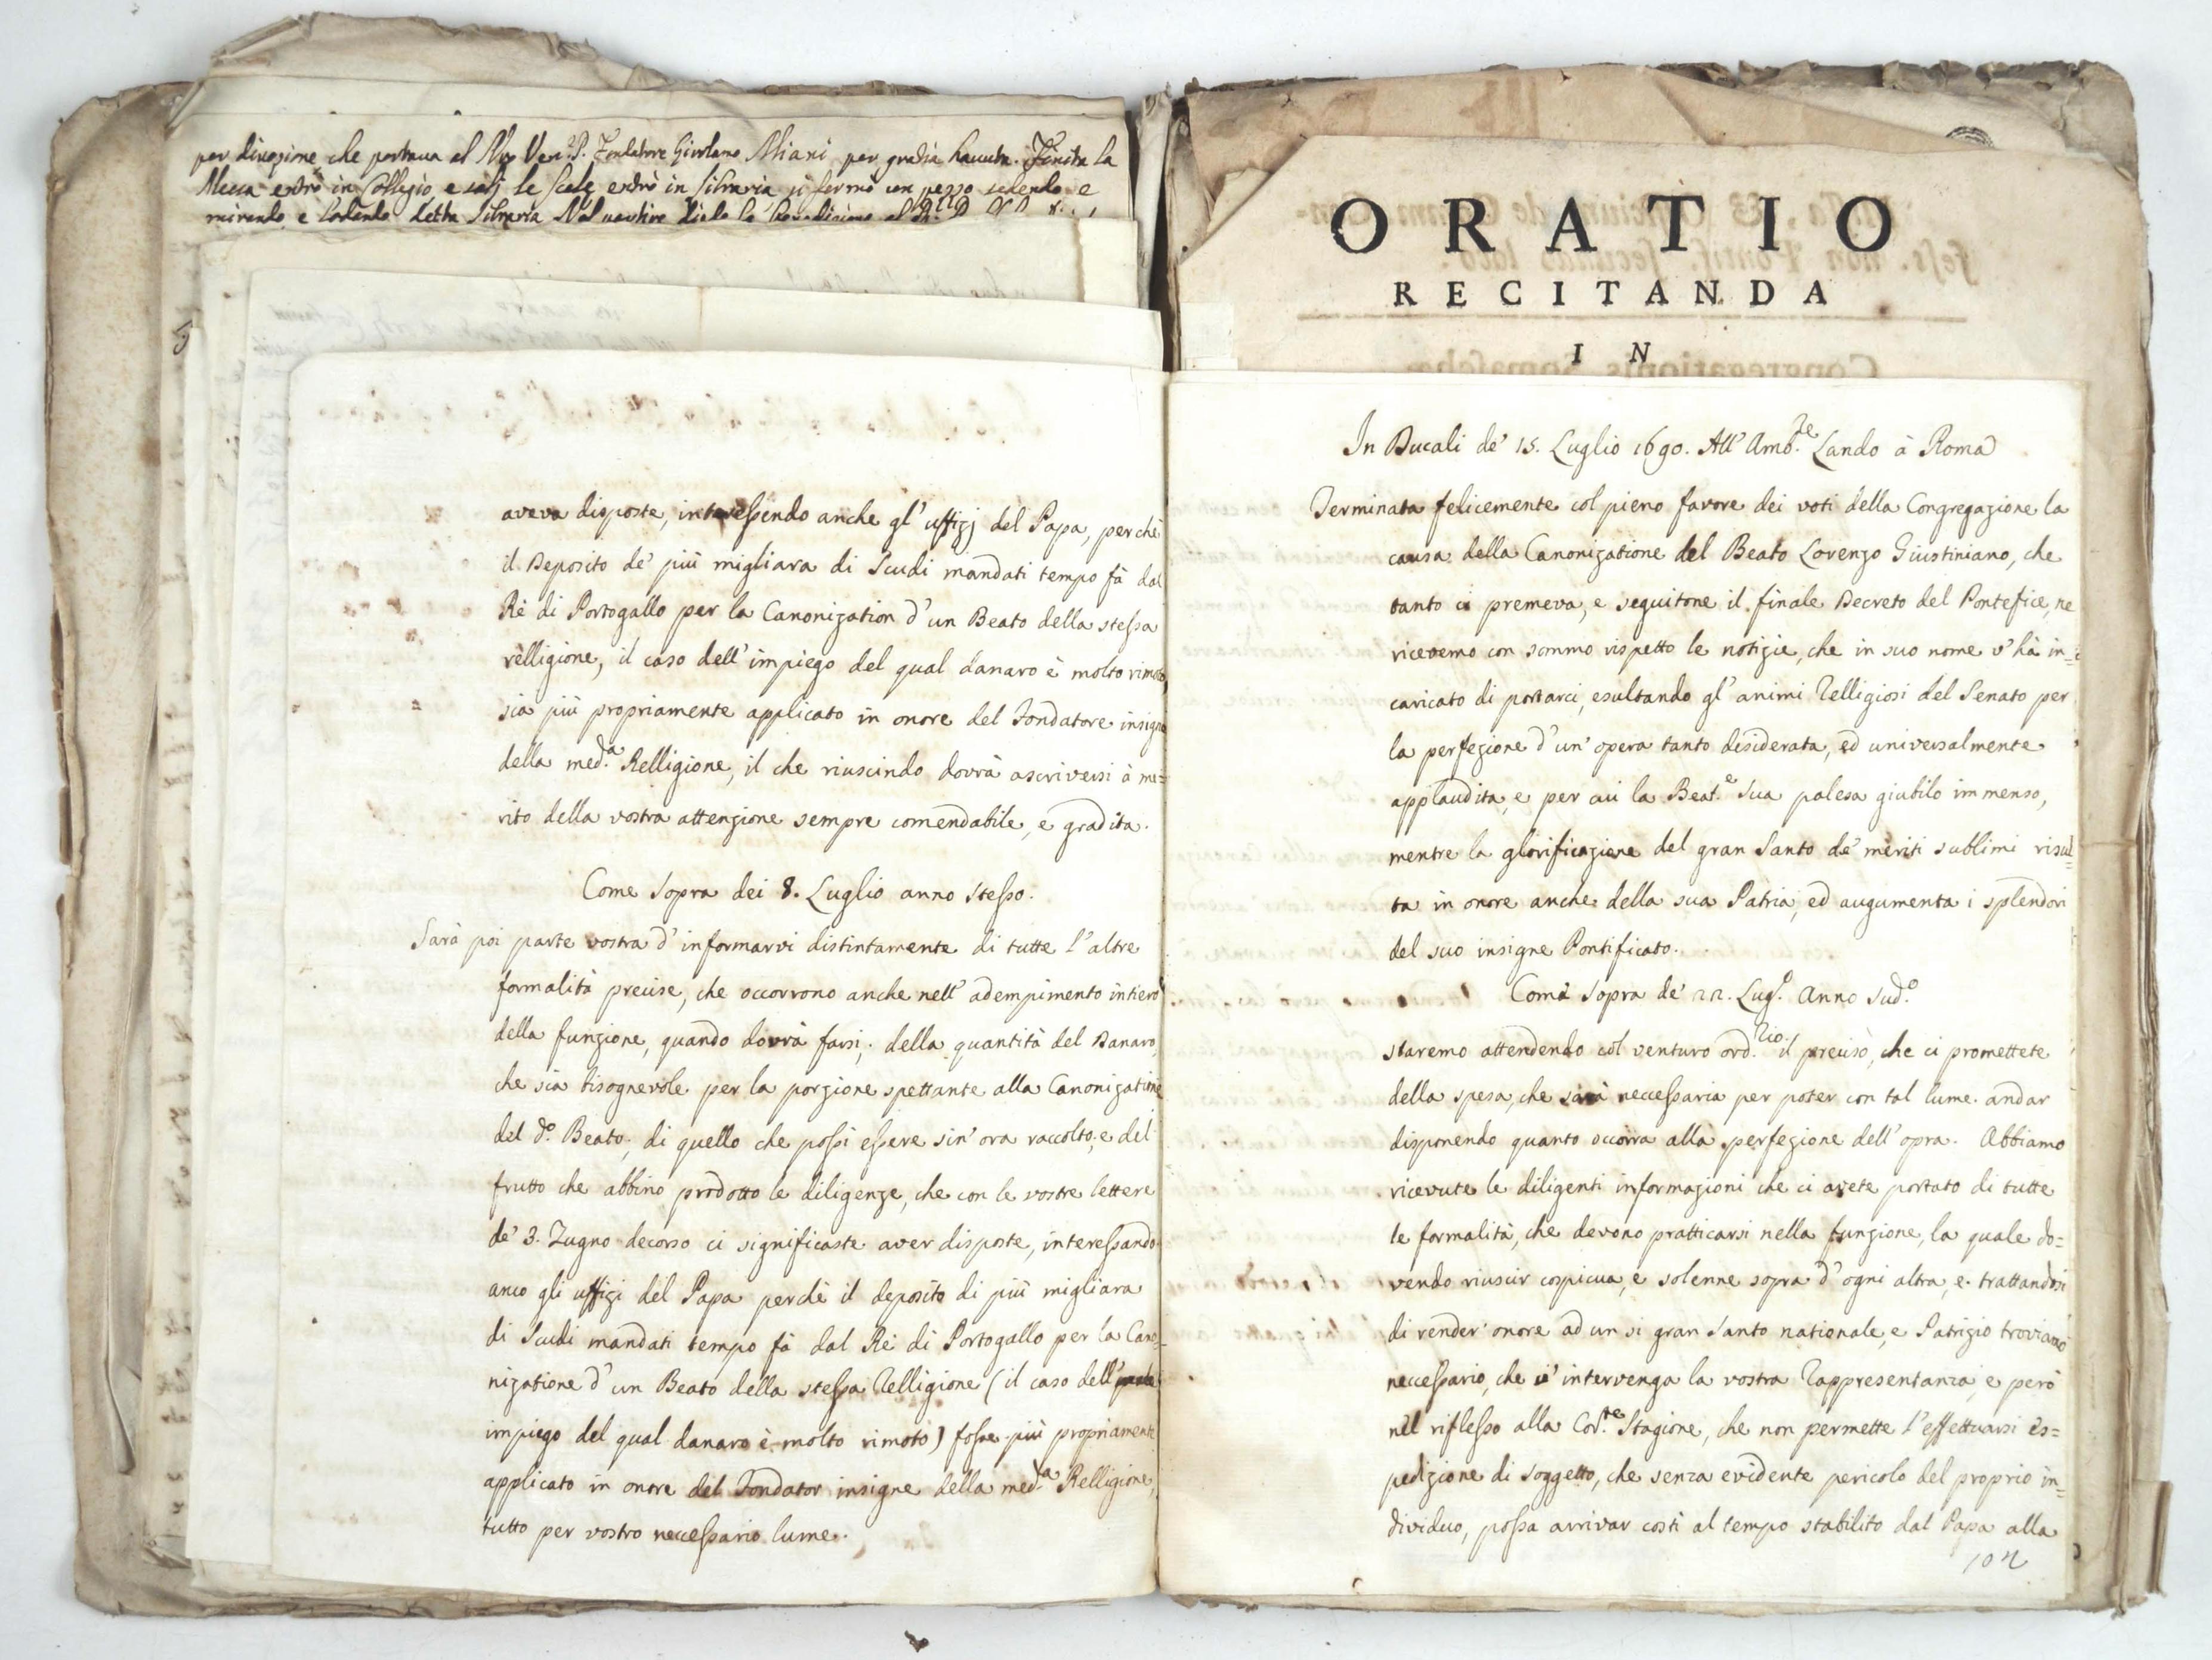 per divozione che portava al Nro Ven. P. Fondatore Girolamo Miani per grazia havuta. Finita la
Messa entrò in Collegio e salj le Scale entrò in libraria si fermò un pezzo sedendo e
mirando, e lodando detta libraria Nel partire diede la benedizione al
aveva disposte, interessendo anche gl' uffizj del Papa, perchè
il Deposito de' più migliara di Scudi mandati tempo fà dal
Rè di Portogallo per la Canonization d' un Beato della stessa
relligione, il caso dell' impiego del qual danaro è molto rimoto,
sia più propriamente applicato in onore del Fondatore insigne
della med.a Relligione, il che riuscindo dovrà ascriversi à me=
rito della vostra attenzione sempre comendabile, e gradita.
Come sopra dei 8. Luglio anno stesso.
Sarà poi parte vostra d' informarvi distintamente di tutte l' altre
formalità precise, che occorrono anche nell' adempimento intiero
della funzione, quando dovrà farsi; della quantità del Danaro,
che sia bisognevole per la porzione spettante alla Canonizatione
del d.o Beato; di quello che possi essere sin' ora raccolto, e del
frutto che abbino prodotto le diligenze, che con le vostre lettere
de' 3. Zugno decorso ci significaste aver disposte, interessando
anco gli uffizi del Papa perchè il deposito di più migliara
di Scudi mandati tempo fà dal Rè di Portogallo per la Cano=
nizatione d' un Beato della stessa Relligione (il caso dell'
impiego del qual danaro è molto rimoto) fosse più propriamente
applicato in onore del Fondator insigne della med.a Relligione,
tutto per vostro necessario lume.
ORATIO
RECITANDA
IN
In Ducali de' 15. Luglio 1690. All' Amb.re Lando à Roma
Terminata felicemente col pieno favore dei voti della Congregazione la
causa della Canonizatione del Beato Lorenzo Giustiniano, che
tanto ci premeva, e seguitone il finale Decreto del Pontefice, ne
ricevemo con sommo rispetto le notizie, che in suo nome v' hà in=
caricato di portarci, esultando gl' animi Relligiosi del Senato per
la perfezione d' un' opera tanto desiderata, ed universalmente
applaudita, e per cui la Beat.e Sua palesa giubilo immenso,
mentre la glorificazione del gran Santo de' meriti sublimi risul=
ta in onore anche della sua Patria, ed augumenta i splendori
del suo insigne Pontificato.
Come sopra de' 22. Lug.o Anno sud.o
staremo attendendo col venturo ord.rio il preciso, che ci promettete
della spesa, che sarà neccessaria per poter con tal lume andar
disponendo quanto occorra alla perfezione dell' opra. Abbiamo
ricevute le diligenti informazioni che ci avete portato di tutte
le formalità, che devono pratticarsi nella funzione, la quale do=
vendo riuscir cospicua, e solenne sopra d' ogni altra, e trattandosi
di render' onore ad un si gran Santo nationale, e Patrizio troviamo
neccessario, che v' intervenga la vostra Rappresentanza, e però
nel riflesso alla Cor.te Stagione, che non permette l' effettuarsi es=
pedizione di soggetto, che senza evidente pericolo del proprio in=
dividuo, possa arrivar costì al tempo stabilito dal Papa alla
102